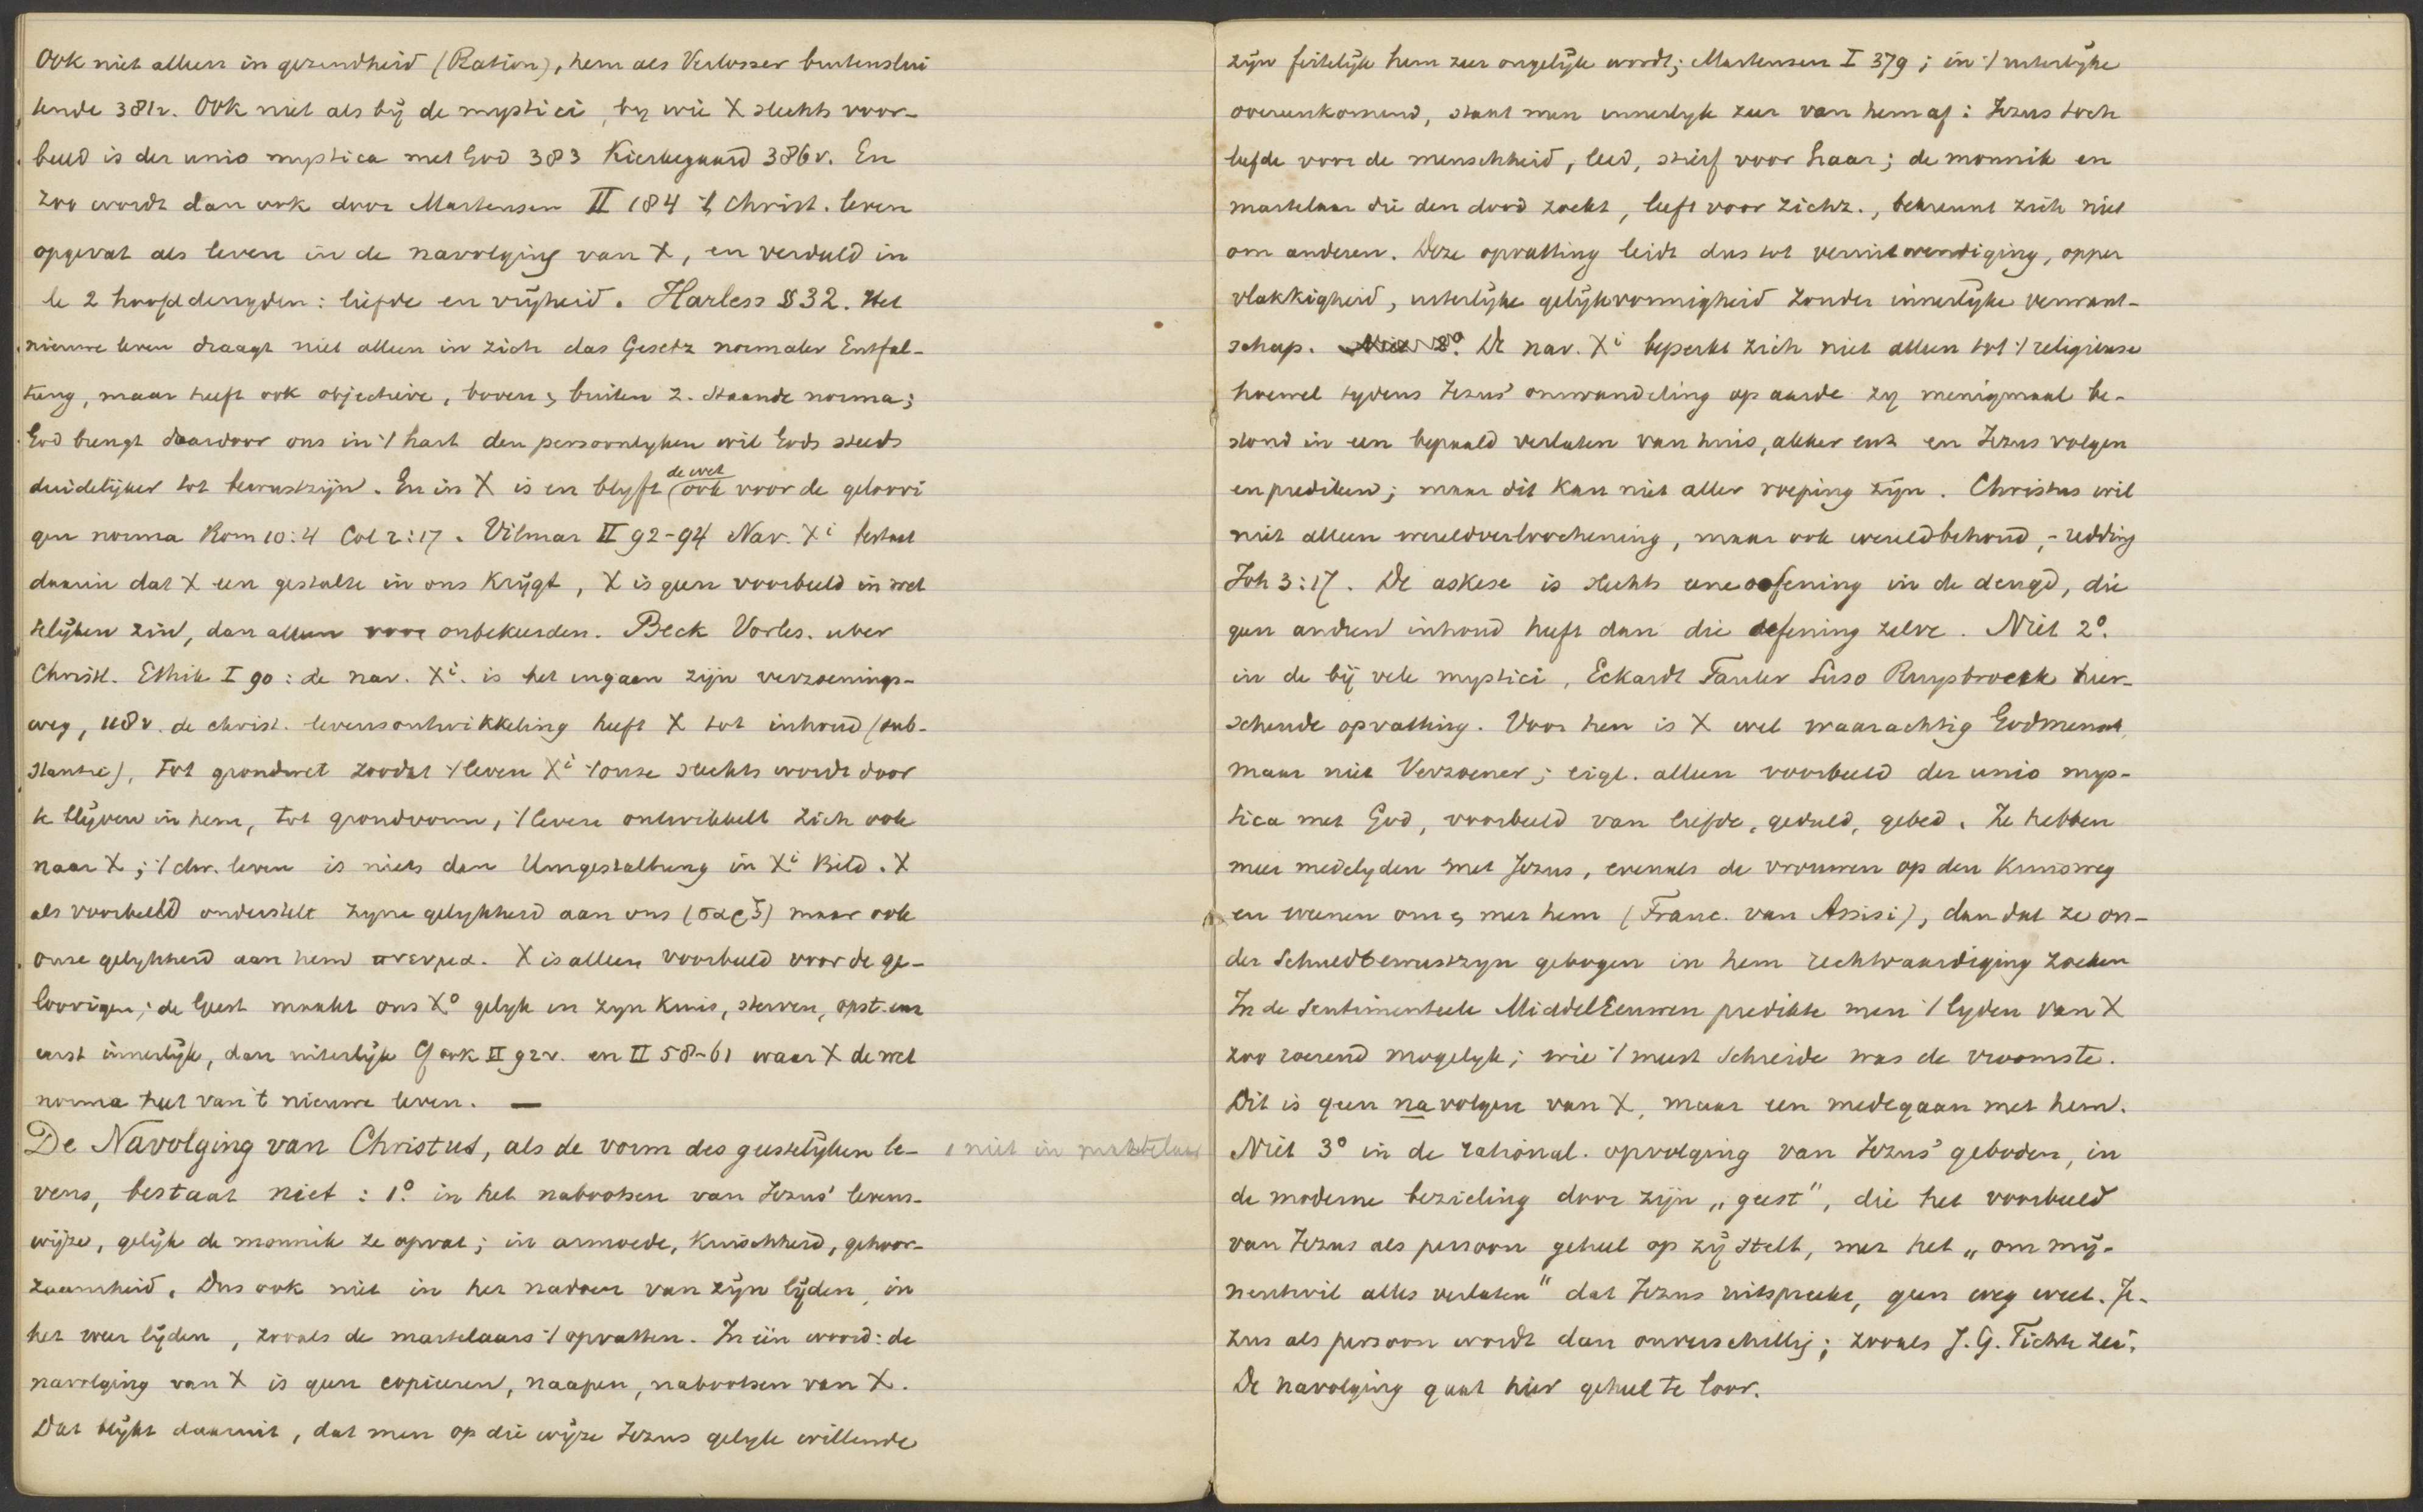 Ook niet alleen in gezindheid (Ration), hem als Verlosser buitenslui
tende 381v. Ook niet als bij de mystici, by wie X slechts voor-
beeld is der unio mystica met God 383 Kierkegaard 386v. En
zoo wordt dan ook door Martensen II 184 't Christ. leven
opgevat als leven in de navolging van X, en verduld in
de 2 hoofddeugden: liefde en vrijheid. Harless § 32. Het
nieuwe leven draagt niet alleen in zich das Gesetz normaler Entfal-
tung, maar heeft ook objectieve, boven & buiten z. staande norma;
God brengt daardoor ons in 't hart den persoonlyken wil Gods steeds
duidelijker tot bewustzijn. En in X is en blyft de wet ook voor de geloovi
gen norma Rom 10:4 Col 2:17. Vilmar II 92-94 Nav. Xi bestaat
daarin dat X een gestalte in ons krijgt, X is geen voorbeeld in wet
telijken zin, dan alleen voor onbekeerden. Beck Vorles. uber
Christl. Ethik I 90: de nav. Xi. is het ingaan zijn verzoenings-
weg, 118v. de christ. levensontwikkeling heeft X tot inhoud (sub-
stantie), tot grondwet zoodat 't leven Xi 't onze slechts wordt door
te blijven in hem, tot grondvorm, 't leven ontwikkelt zich ook
naar X; 't chr. leven is niets dan Umgestaltung in Xi Bild. X
als voorbeeld onderstelt zyne gelykheid aan ons (σαρξ) maar ook
onze gelykheid aan hem πνευμα. X is alleen voorbeeld voor de ge-
loovigen; de Geest maakt ons Xo gelyk in zyn kruis, sterven, opst. enz
eerst innerlijk, dan uiterlijk Cf ook II 92v. en II 58-61 waar X de wet
norma heet van 't nieuwe leven. —
De Navolging van Christus, als de vorm des geestelijken le-
vens, bestaat niet: 1o. in het nabootsen van Jezus' levens-
wijze, gelijk de monnik ze opvat; in armoede, kuischheid, gehoor-
zaamheid. Dus ook niet in het nadoen van zijn lijden, in
het weer lijden, zooals de martelaars 't opvatten. In één woord: de
navolging van X is geen copieeren, naapen, nabootsen van X.
Dat blijkt daaruit, dat men op die wijze Jezus gelyk willende
, niet in
zijn feitelijk hem zeer ongelijk wordt; Martensen I 379; in 't uiterlijke
overeenkomend, staat men innerlyk zeer van hem af: Jezus toch
leefde voor de menschheid, leed, stierf voor haar; de monnik en
martelaar die den dood zoekt, leeft voor zichz., bekreunt zich niet
om anderen. Deze opvatting leidt dus tot veruitwendiging, opper
vlakkigheid, uiterlijke gelijkvormigheid zonder innerlijke verwant-
schap. De nav. Xi beperkt zich niet alleen tot 't religieuse
hoewel tydens Jezus' omwandeling op aarde zy menigmaal be-
stond in een bepaald verlaten van huis, akker enz en Jezus volgen
en prediken; maar dit kan niet aller roeping zijn. Christus wil
niet alleen wereldverloochening, maar ook wereldbehoud, - redding
Joh 3:17. De askese is slechts eene oefening in de deugd, die
geen andren inhoud heeft dan die oefening zelve. Niet 2o.
in de bij vele mystici, Eckardt Tauler Suso Ruysbroeck heer-
schende opvatting. Voor hen is X wel waarachtig Godmensch,
maar niet Verzoener; eigl. alleen voorbeeld der unio mys-
tica met God, voorbeeld van liefde, geduld, gebed. Ze hebben
meer medelyden met Jezus, evenals de vrouwen op den Kruisweg
en weenen om & met hem (Franc. van Assisi), dan dat ze on-
der Schuldbewustzyn gebogen in hem rechtvaardiging zoeken
In de Sentimenteele MiddelEeuwen predikte men 't lyden van X
zoo roerend mogelyk; wie 't meest schreide was de vroomste.
Dit is geen navolgen van X, maar een medegaan met hem.
Niet 3o in de rational. opvolging van Jezus' geboden, in
de moderne bezieling door zijn „geest", die het voorbeeld
van Jezus als persoon geheel op zij stelt, met het „om mij-
nentwil alles verlaten" dat Jezus uitspreekt, geen weg weet. Je-
zus als persoon wordt dan onverschillig; zooals J. G. Fichte zei.
De navolging gaat hier geheel te loor.